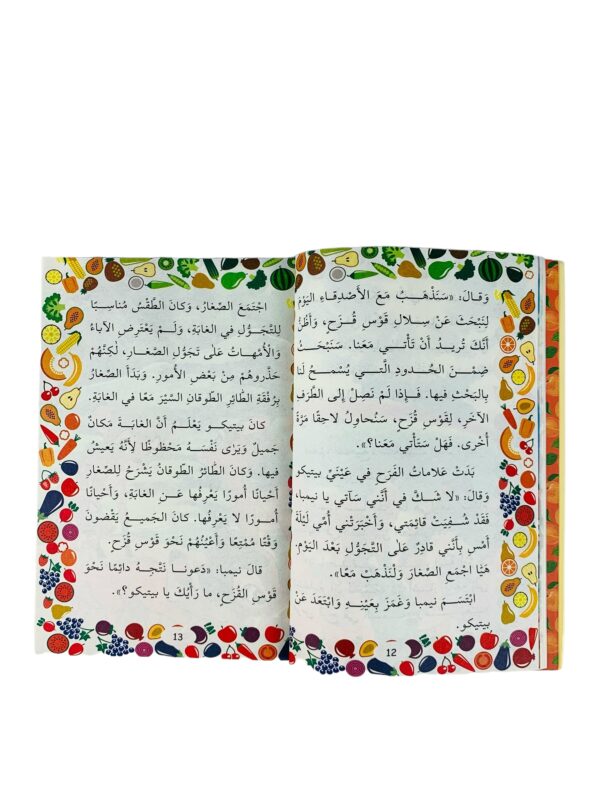 وَقالَ: «سَنَذْهَبُ مَعَ الأَصْدِقاءِ اليَوْمَ
لِنَبْحَثَ عَنْ سِلالِ قَوْسِ قُزَحٍ، وَأَظُنُّ
أَنَّكَ تُريدُ أَنْ تَأْتي مَعَنا. سَنَبْحَثُ
ضِمْنَ الحُدودِ الَّتي يُسْمَحُ لَنا
بِالبَحْثِ فيها. فَإِذا لَمْ نَصِلْ إِلى الطَّرَفِ
الآخَرِ لِقَوْسِ قُزَحٍ، سَنُحاوِلُ لاحِقًا مَرَّةً
أُخْرى. فَهَلْ سَتَأْتي مَعَنا؟».
بَدَتْ عَلاماتُ الفَرَحِ في عَيْنَيْ بيتيكو
وَقالَ: «لا شَكَّ في أَنَّني سَآتي يا نيمبا،
فَقَدْ شُفِيَتْ قائِمَتي، وَأَخْبَرَتْني أُمّي لَيْلَةَ
أَمْسِ بِأَنَّني قادِرٌ عَلى التَّجَوُّلِ بَعْدَ اليَوْمِ.
هَيّا اجْمَعِ الصِّغارَ وَلْنَذْهَبْ مَعًا».
ابْتَسَمَ نيمبا وَغَمَزَ بِعَيْنِهِ وَابْتَعَدَ عَنْ
بيتيكو.
12
اجْتَمَعَ الصِّغارُ، وَكانَ الطَّقْسُ مُناسِبًا
لِلتَّجَوُّلِ في الغابَةِ، وَلَمْ يَعْتَرِضِ الآباءُ
وَالأُمَّهاتُ عَلى تَجَوُّلِ الصِّغارِ، لَكِنَّهُمْ
حَذَّروهُمْ مِنْ بَعْضِ الأُمورِ. وَبَدَأَ الصِّغارُ
بِرُفْقَةِ الطّائِرِ الطّوقانِ السَّيْرَ مَعًا في الغابَةِ.
كانَ بيتيكو يَعْلَمُ أَنَّ الغابَةَ مَكانٌ
جَميلٌ وَيَرى نَفْسَهُ مَحْظوظًا لِأَنَّهُ يَعيشُ
فيها. وَكانَ الطّائِرُ الطّوقانُ يَشْرَحُ لِلصِّغارِ
أَحْيانًا أُمورًا يَعْرِفُها عَنِ الغابَةِ، وَأَحْيانًا
أُمورًا لا يَعْرِفُها. كانَ الجَميعُ يَقْضونَ
وَقْتًا مُمْتِعًا وَأَعْيُنُهُمْ نَحْوَ قَوْسِ قُزَحٍ.
قالَ نيمبا: «دَعونا نَتَّجِهُ دائِمًا نَحْوَ
قَوْسِ القُزَحِ، ما رَأْيُكَ يا بيتيكو؟».
13